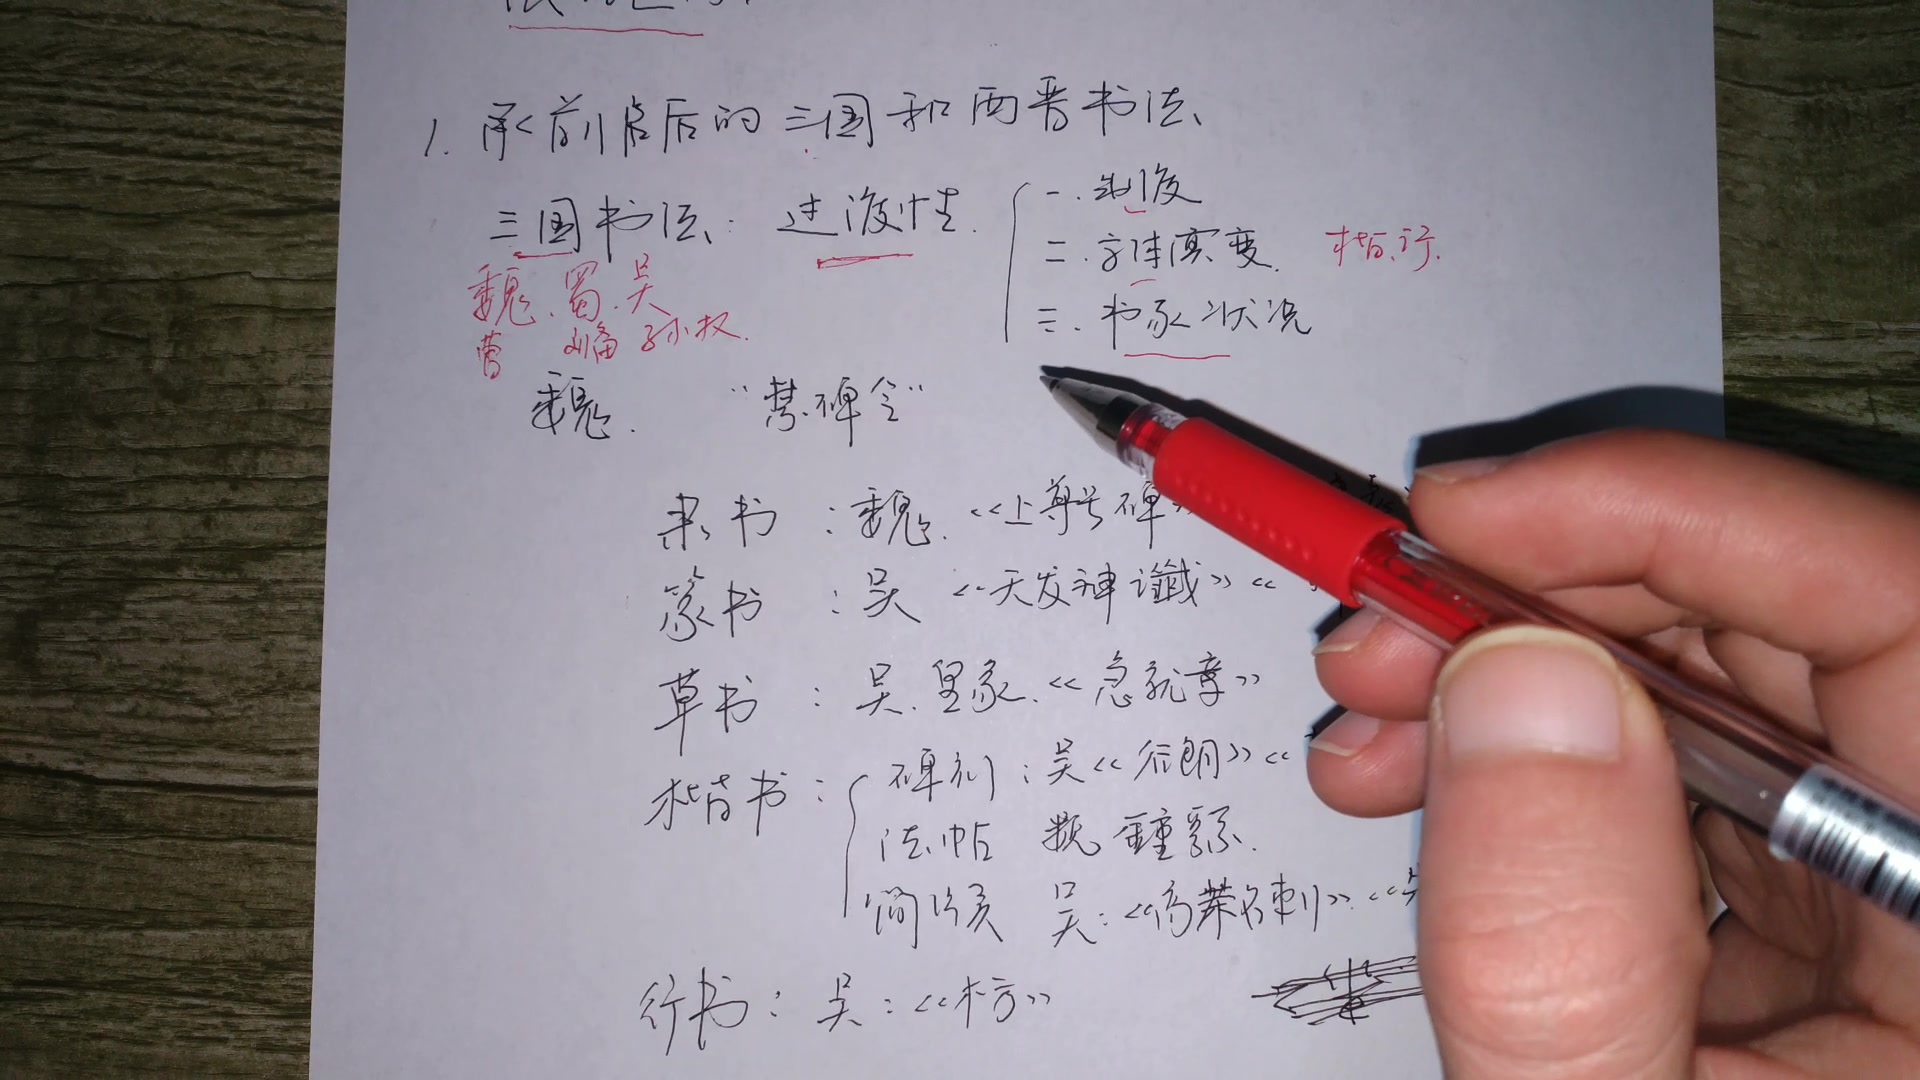 1. 承前启后的三国和两晋书法
三国书法: 过渡性.
一. 制度
二. 字体演变. 楷.行.
三. 书家状况
魏.蜀.吴
曹 刘备 孙权.
魏. "禁碑令"
隶书:魏.《上尊号碑》
篆书:吴《天发神谶》《
草书:吴.皇象.《急就章》
楷书:
碑刻:吴《谷朗》《
法帖 魏 锺繇.
简牍 吴:《高荣名刺》.《
行书:吴:《